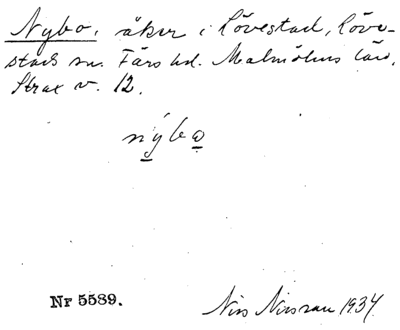 Nybo, åker i Lövestad, Löve-
stads sn. Färs hd. Malmöhus län,
Strax v. 12.
nýbo
Nr 5589.
Nils Nilsson 1934.